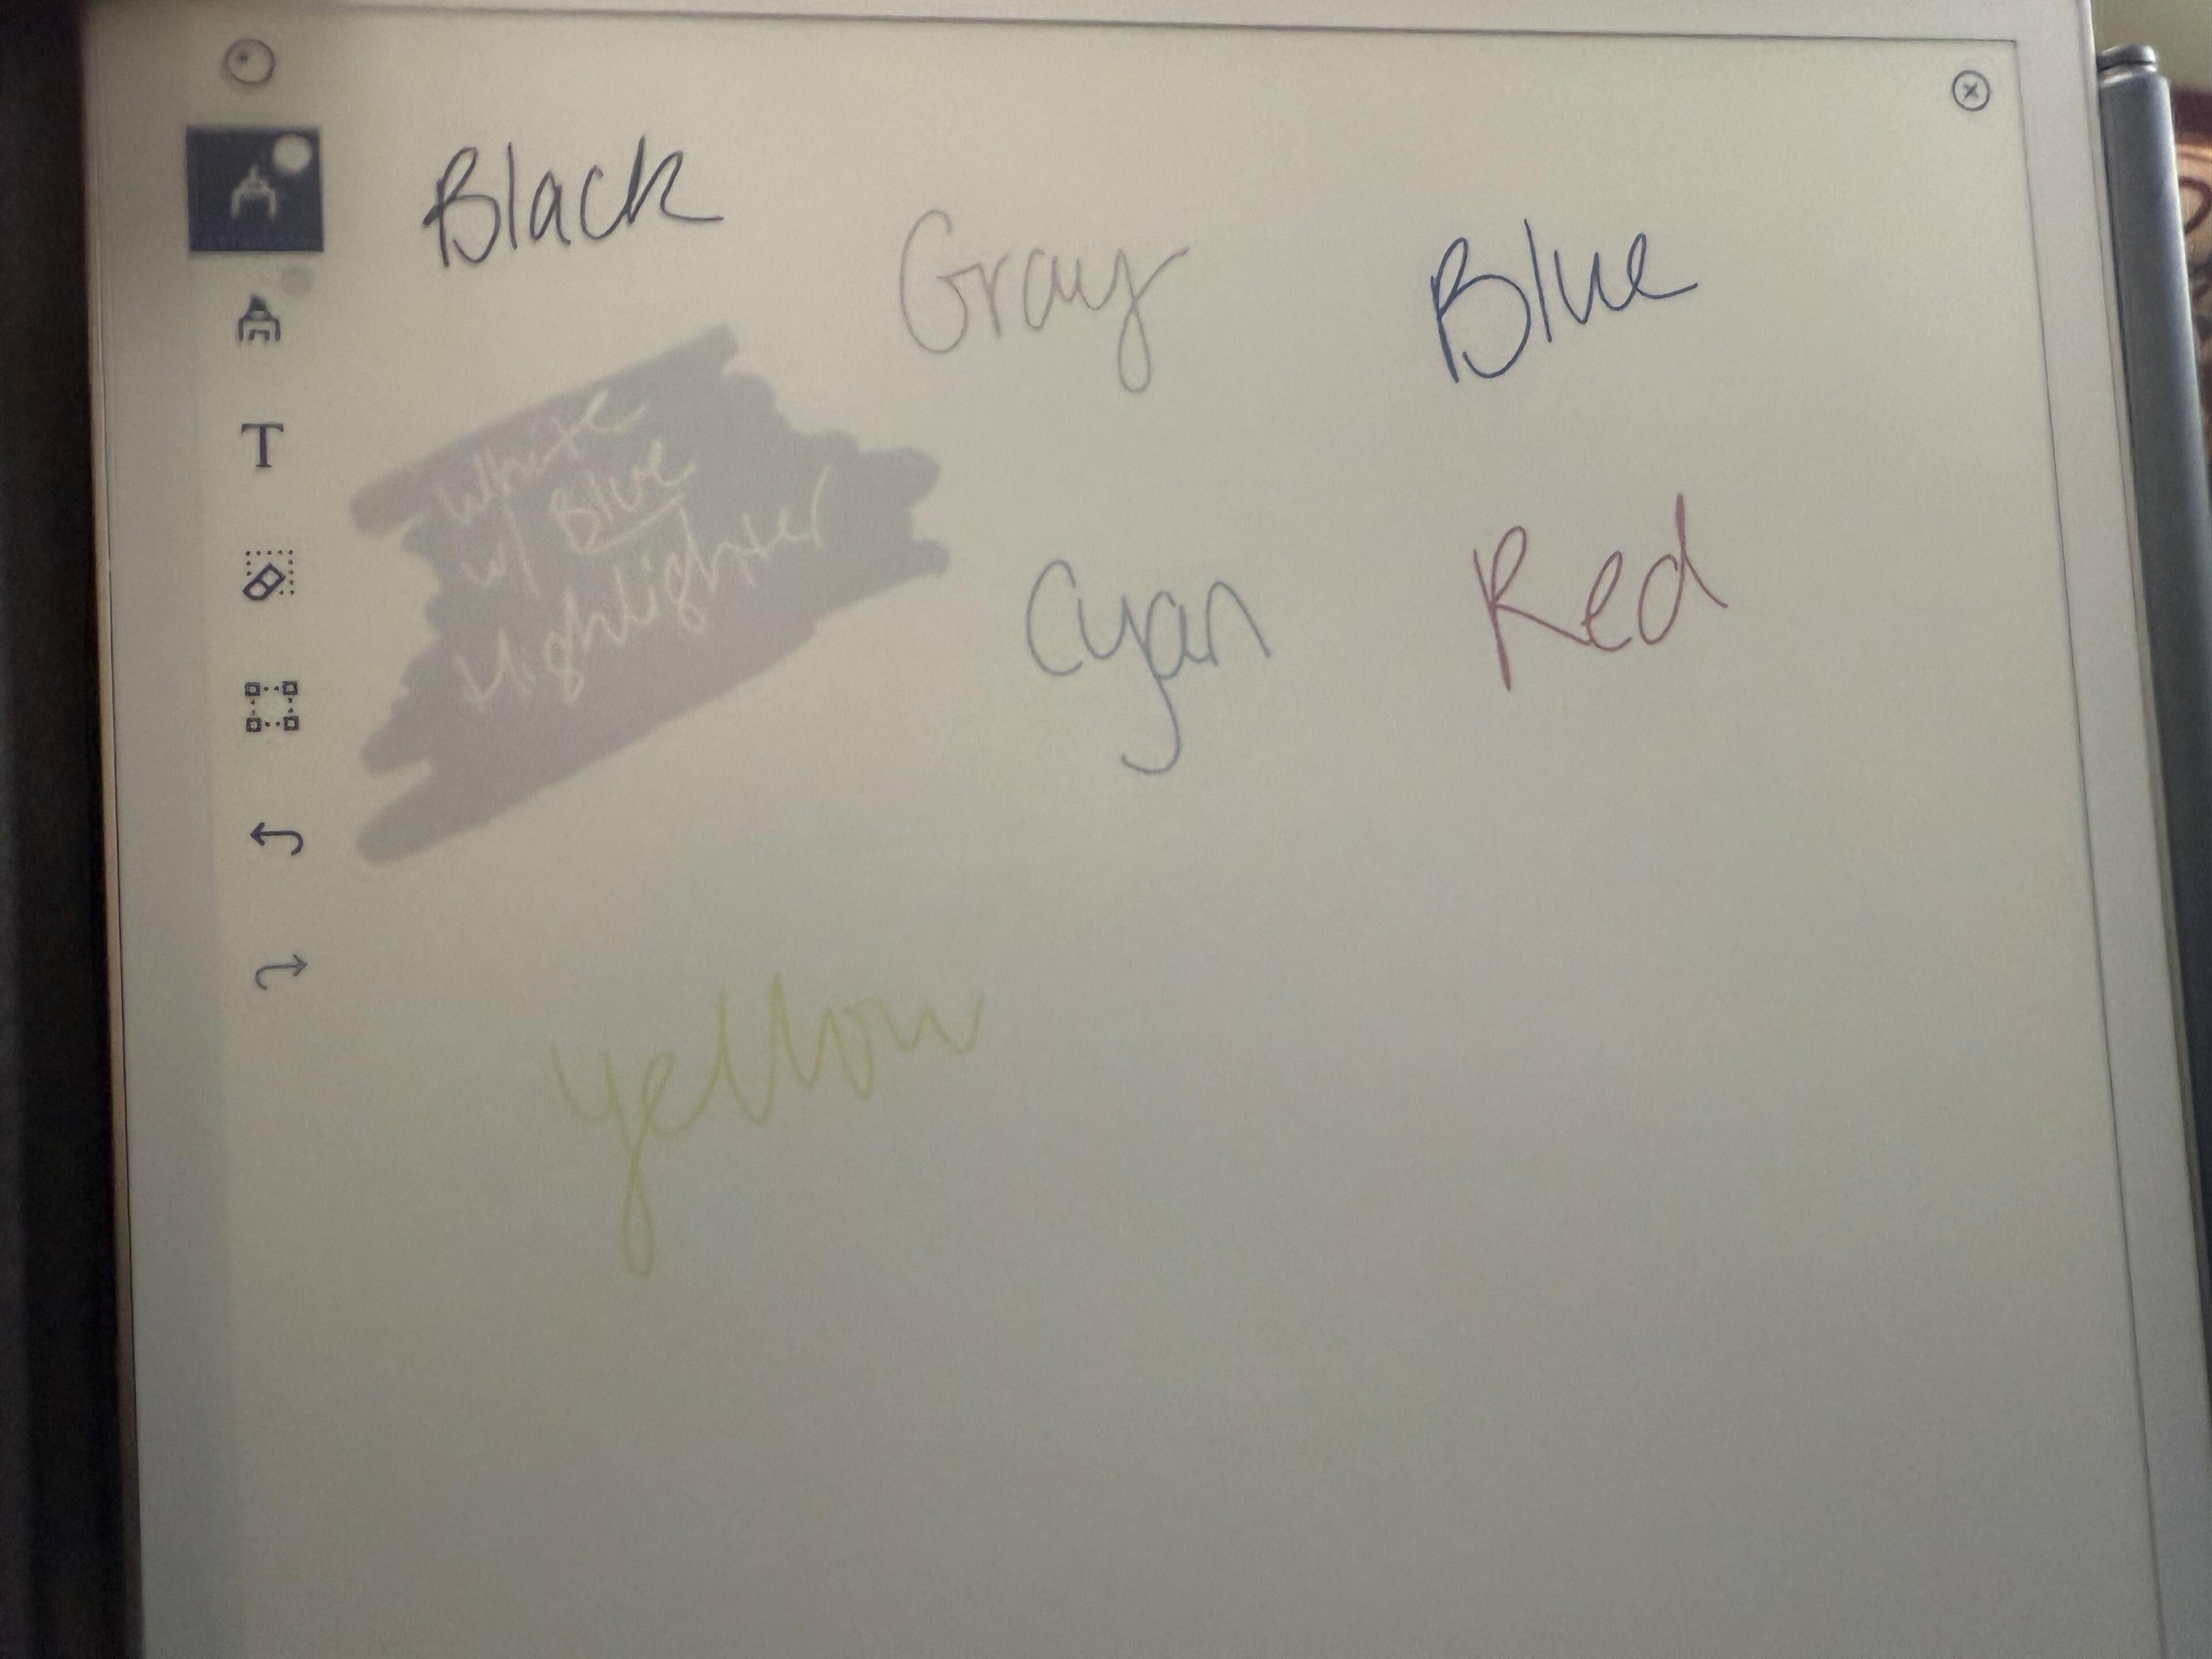 Black
Gray
Blue
white
w/ Blue
Highlighter
Cyan
Red
yellow
T